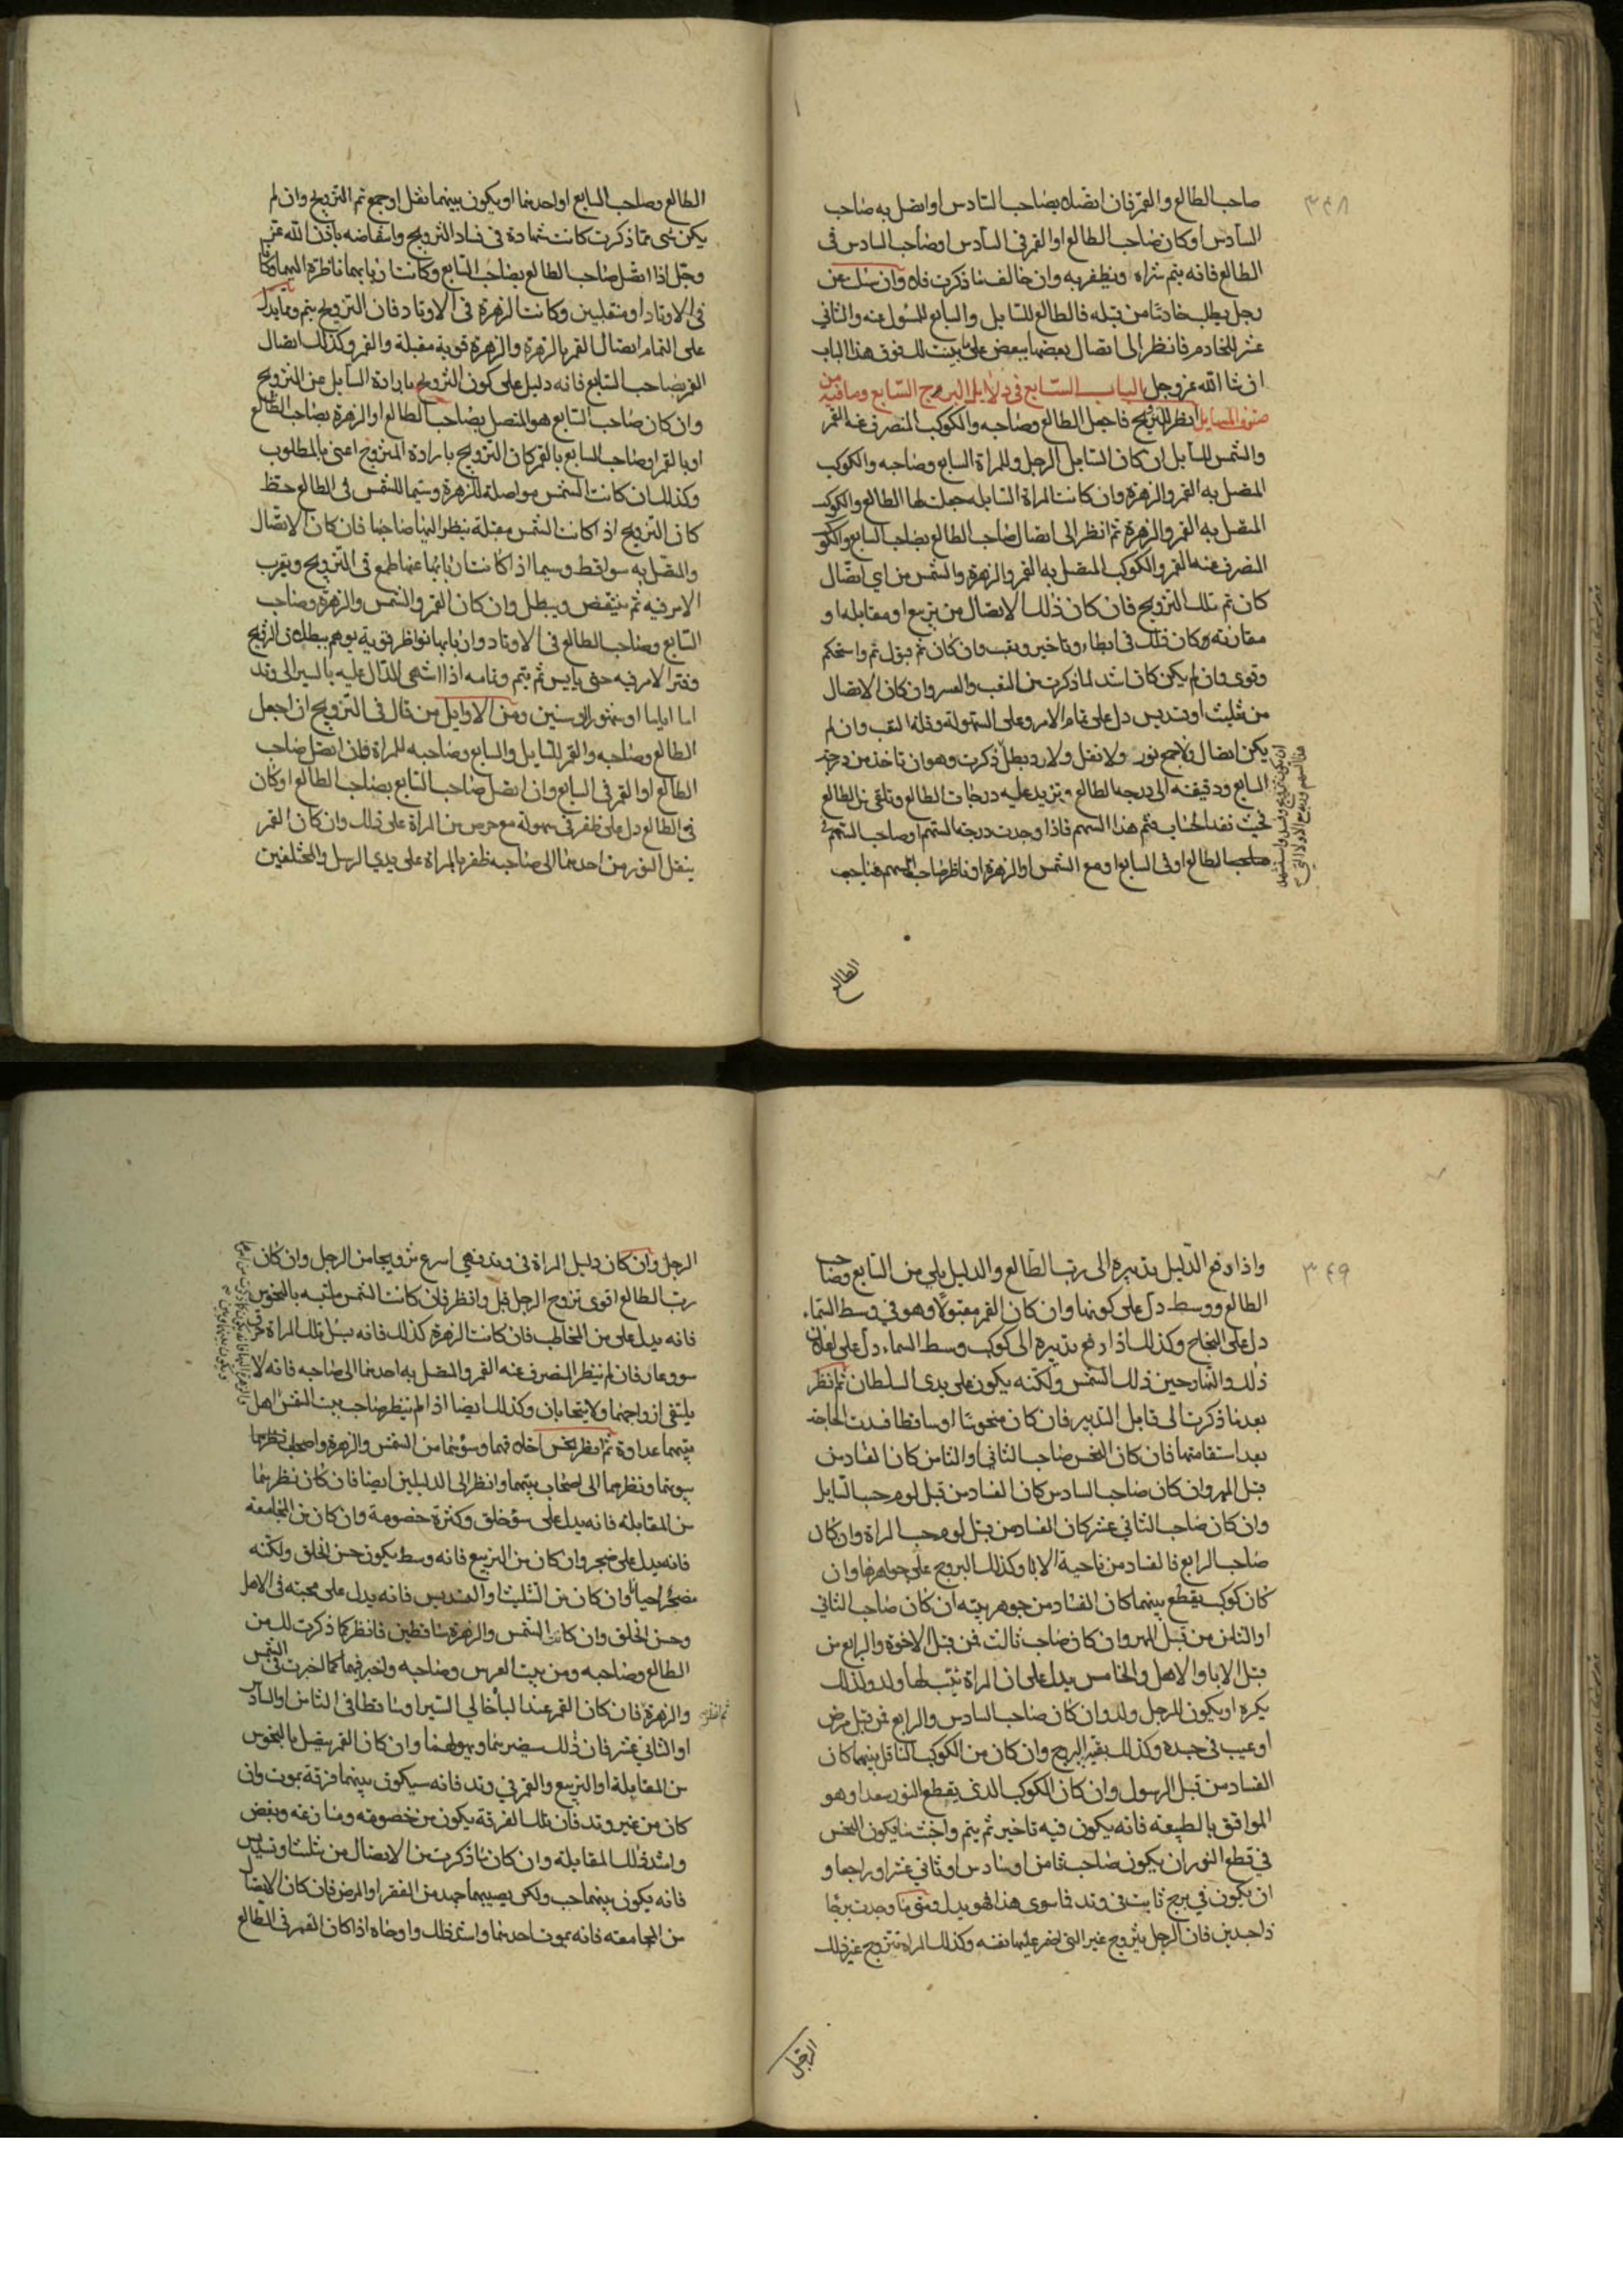 ٣٤٨
صاحب الطالع والقمر فان اتصلا بصاحب السادس او اتصل به صاحب
السادس او كان صاحب الطالع او القمر في السادس او صاحب السادس في
الطالع فانه يتم شراه ويظفر به وان خالف ما ذكرت فلا وان سئلت عن
رجل يطلب خادما من قبله فالطالع للسايل والسابع للمسول عنه والثاني
عشر للخادم فانظر الى اتصال بعضها ببعض على ما بينت لك فوق هذا الباب
ان شا الله عز وجل الباب السابع في دلايل البرج السابع وما فيه من
صنوف المسايل انظر للتزويج فاجعل الطالع وصاحبه والكوكب المنصرف عنه القمر
والشمس للسايل ان كان السايل الرجل وللمراة السابع وصاحبه والكوكب
المتصل به القمر والزهرة وان كانت المراة السايله جعلت لها الطالع والكوكب
المتصل به القمر والزهرة ثم انظر الى اتصال صاحب الطالع بصاحب السابع والكوكب
المنصرف عنه القمر والكوكب المتصل به القمر والزهرة والشمس من اي اتصال
كان تم تلك التزويج فان كان ذلك الاتصال من تربيع او مقابله او
مقارنه وكان ذلك في ابطاء وتاخير وتعب وان كان ثم قبول تم واستحكم
وقوى وان لم يكن كان اشد لما ذكرت من التعب والعسر وان كان الاتصال
من تثليث او تسديس دل على تمام الامر وعلى السهولة وقلة التعب وان لم
يكن اتصال ولا جمع نور ولا نقل ولا رد بطل ذكرت وهو ان تاخذ من درجة
السابع ودقيقته الى درجة الطالع وتزيد عليه درجات الطالع وتلقى من الطالع
فحيث نفد الحساب فثم هذا السهم فاذا وجدت درجة السهم او صاحب السهم في
الطالع او في السابع او مع الشمس او الزهرة او ناظر صاحب السهم صاحب
الطالع
الطالع وصاحب السابع او احدهما او يكون بينهما نقل او جمع تم التزويج وان لم
يكن شى مما ذكرت كانت شهادة في فساد التزويج وانتقاضه باذن الله عز
وجل اذا اتصل صاحب الطالع بصاحب السابع وكانت اربابهما ناظرة اليهما وكانا
في الاوتاد او منقلبين وكانت الزهرة في الاوتاد فان التزويج يتم ومما يدل
على التمام اتصال القمر بالزهرة والزهرة قوية مقبلة والقمر وكذلك اتصال
القمر بصاحب السابع فانه دليل على كون التزويج بارادة السايل عن التزويج
وان كان صاحب السابع هو المتصل بصاحب الطالع او الزهرة بصاحب الطالع
او بالقمر او صاحب السابع بالقمر كان التزويج بارادة المتزوج اعنى بالمطلوب
وكذلك ان كانت الشمس مواصلة للزهرة وسيما للشمس في الطالع حظ
كان التزويج اذا كانت الشمس مقبلة ينظر اليها صاحبها فان كان الاتصال
والمتصل به سواقط وسيما اذا كانت اربابها عنها طمع في التزويج ويقرب
الامر فيه ثم ينتقض ويبطل وان كان القمر والشمس والزهرة وصاحب
السابع وصاحب الطالع في الاوتاد واربابها نواظر قوية يوهم ببطلان التزويج
وفتر الامر فيه حتى يايس ثم يتم وتمامه اذا انتهى الدال عليه بالسير الى وتد
اما اياما او شهورا او سنين ومن الاوايل من قال في التزويج ان اجعل
الطالع وصاحبه والقمر للسايل والسابع وصاحبه للمراة فان اتصل صاحب
الطالع او القمر في السابع وان اتصل صاحب السابع بصاحب الطالع او كان
في الطالع دل على ظفر في سهولة مع حرص من المراة على ذلك وان كان القمر
ينقل النور من احدهما الى صاحبه ظفر بالمراة على يدي الرسل والمختلفين
٣٤٩
واذا دفع الدليل بتدبيره الى رب الطالع والدليل يلي من السابع وصاحب
الطالع ووسط دل على كونها وان كان القمر مقبولا وهو في وسط السماء
دل على النجاح وكذلك اذا دفع تدبيره الى كوكب وسط السماء دل على
ذلك والتاريخين ذلك الشمس ولكنه يكون على يدي السلطان ثم انظر
بعد ما ذكرت الى قابل التدبير فان كان منحوسا او ساقطا فسدت الحاجة
بعد استقامتها فان كان النحس صاحب الثاني او الثامن كان الفساد من
قبل المهر وان كان صاحب السادس كان الفساد من قبل لوم حسب السايل
وان كان صاحب الثاني عشر كان الفساد من قبل لوم حسب المراة وان كان
صاحب الرابع فالفساد من ناحية الابا وكذلك البروج على جواهرها وان
كان كوكب يقطع بينهما كان الفساد من جوهر بيته ان كان صاحب الثاني
او الثامن من قبل المهر وان كان صاحب ثالث فمن قبل الاخوة والرابع من
قبل الابا والاهل والخامس يدل على ان المراة ثيب لها ولد ولذلك
يكره او يكون للرجل ولد وان كان صاحب السادس والرابع فمن قبل مرض
او عيب في جسده وكذلك بقية البروج وان كان من الكوكب الناقل بينهما كان
الفساد من قبل الرسول وان كان الكوكب الذي يقطع النور سعدا وهو
الموافق بالطبيعة فانه يكون فيه تاخير ثم يتم واخبث ما يكون النحس
في قطع النور ان يكون صاحب ثامن او سادس او ثاني عشر او راجعا و
ان يكون في برج ثابت في وتد فما سوى هذا فهو يدل ومتى ما وجدت برجا
ذا جسدين فان الرجل يتزوج غير التي اضمر عليها نفسه وكذلك المراة تتزوج غير ذلك
الرجل
الرجل وان كان دليل المراة في وتد فهي اسرع تزويجا من الرجل وان كان
رب الطالع اقوى تزوج الرجل قبل وانظر فان كانت الشمس ملتبسه بالنحوس
فانه يدل على من المخاطب فان كانت الزهرة كذلك فانه تلك المراة
سوو عار فان لم ينظر المنصرف عنه القمر والمتصل به احدهما الى صاحبه فانه لا
يلتقى ازواجهما ولا يتحابان وكذلك ايضا اذا لم ينظر صاحب بيت الشمس اهل
بيتهما عداوة ثم انظر بحسن اخلاقهما وسوئهما من الشمس والزهرة واصحاب
بيوتهما ونظرهما الى اصحاب بيتهما وانظر الى الدليلين ايضا فان كان نظرهما
من المقابلة فانه يدل على سؤ خلق وكثرة خصومة وان كان من المجامعه
فانه يدل على ضجر وان كان من التربيع فانه وسط يكون حسن الخلق ولكنه
يضجر احيانا وان كان من التثليث او التسديس فانه يدل على محبته في الاهل
وحسن الخلق وان كانت الشمس والزهرة ساقطين فانظر كما ذكرت لك من
الطالع وصاحبه ومن بيت العرس وصاحبه واخبر فيهما كما اخبرت في الشمس
والزهرة فان كان القمر عند البنا خالي السير او ساقطا في الثامن او السادس
او الثاني عشر فان ذلك سيضر بهما ويهولهما وان كان القمر يتصل بالنحوس
من المقابلة او التربيع والقمر في وتد فانه سيكون بينهما فرقة بموت وان
كان من غير وتد فان تلك الفرقة يكون من خصومه ومنازعه وبغض
واشد ذلك المقابلة وان كان ما ذكرت من الاتصال من تثليث او تسديس
فانه يكون بينهما حب ولكن يصيبهما جهد من الفقر او المرض فان كان الاتصال
من المجامعه فانه يموت احدهما واشد ذلك واوحاه اذا كان القمر في الطالع